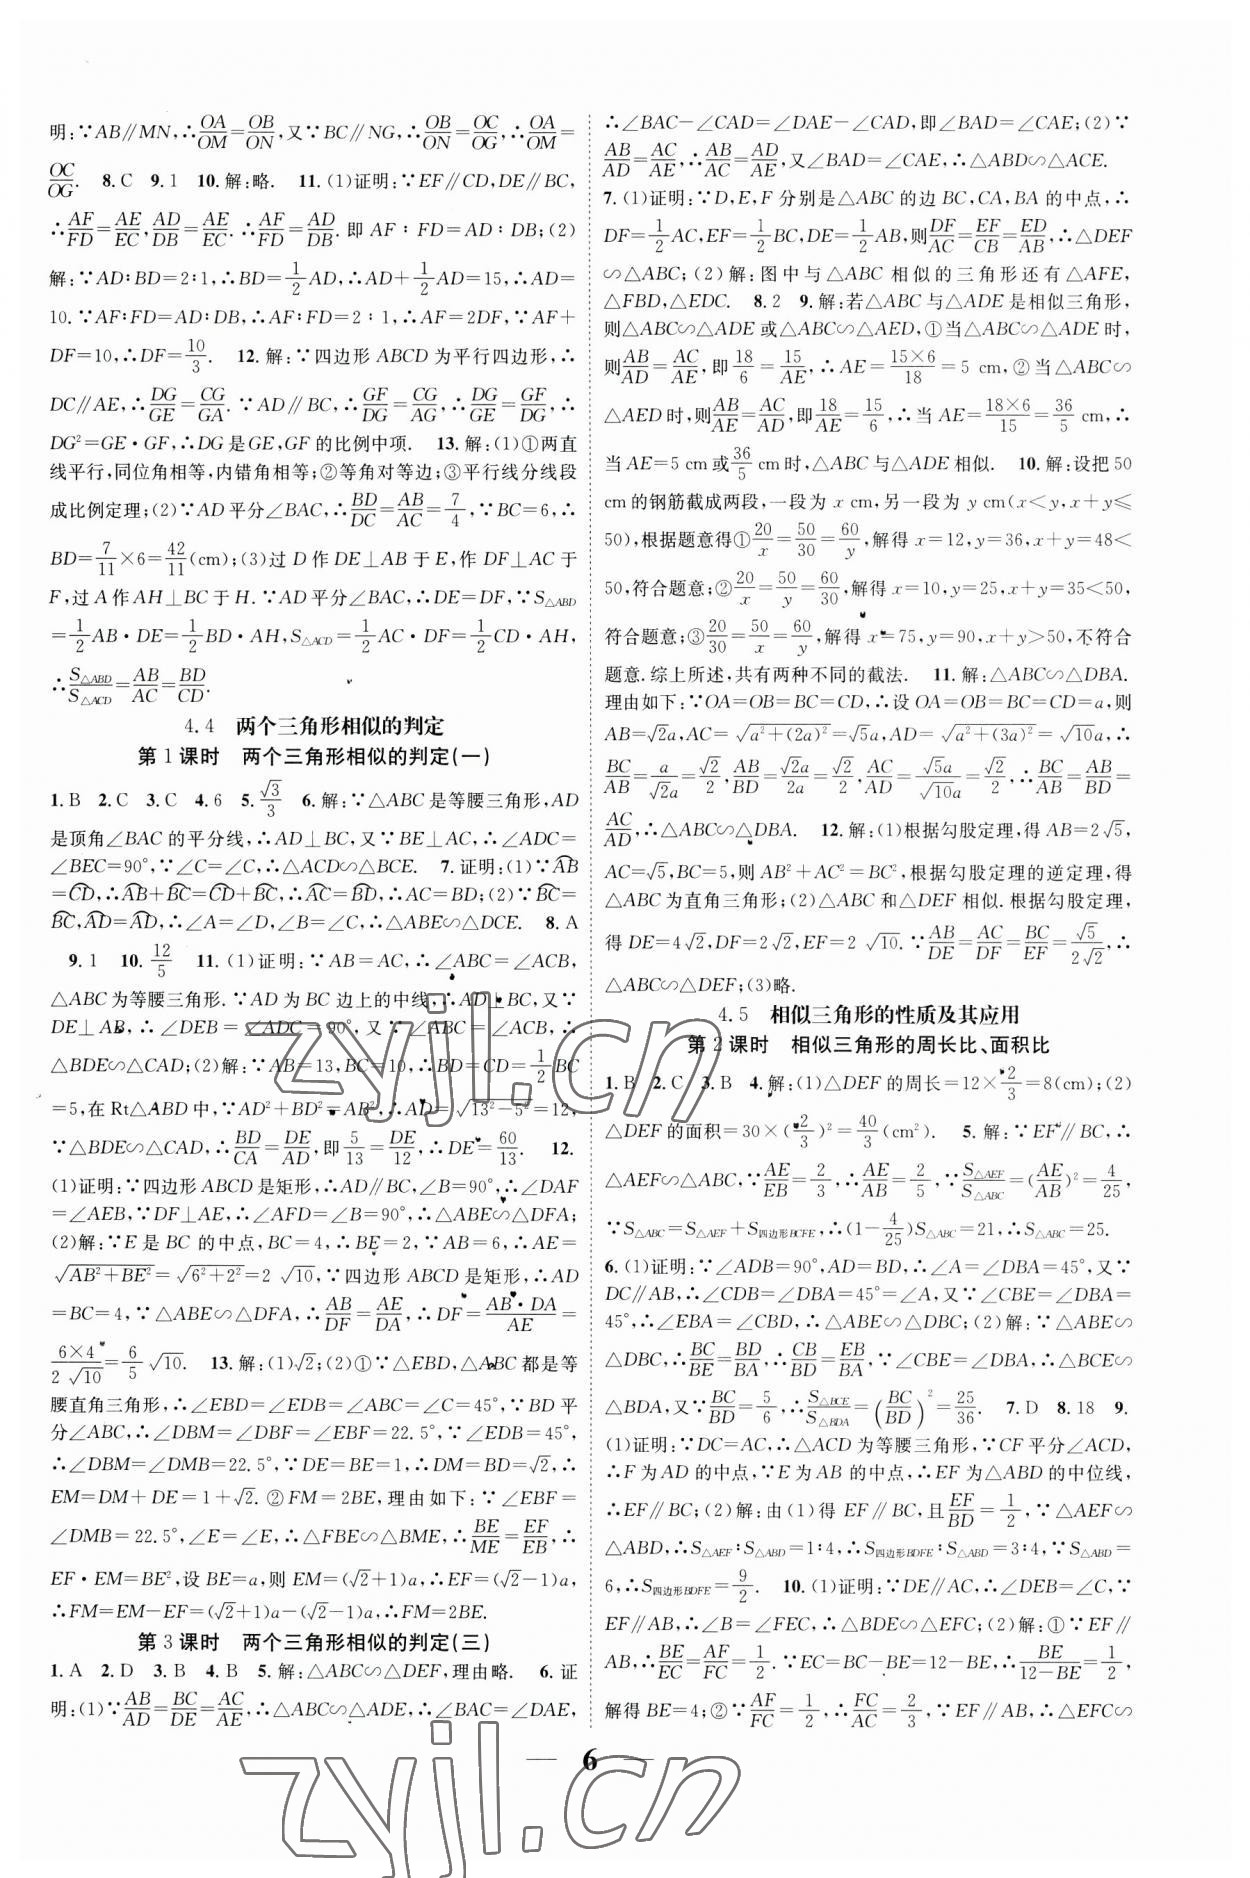 明:∵AB∥MN,∴OA/OM=OB/ON,又∵BC∥NG,∴OB/ON=OC/OG,∴OA/OM=
OC/OG. 8.C 9.1 10.解:略. 11.(1)证明:∵EF∥CD,DE∥BC,
∴AF/FD=AE/EC,AD/DB=AE/EC.∴AF/FD=AD/DB.即AF∶FD=AD∶DB;(2)
解:∵AD∶BD=2∶1,∴BD=1/2AD,∴AD+1/2AD=15,∴AD=
10.∵AF∶FD=AD∶DB,∴AF∶FD=2∶1,∴AF=2DF,∵AF+
DF=10,∴DF=10/3. 12.解:∵四边形ABCD为平行四边形,∴
DC∥AE,∴DG/GE=CG/GA.∵AD∥BC,∴GF/DG=CG/AG,∴DG/GE=GF/DG,∴
DG²=GE·GF,∴DG是GE,GF的比例中项. 13.解:(1)①两直
线平行,同位角相等,内错角相等;②等角对等边;③平行线分线段
成比例定理;(2)∵AD平分∠BAC,∴BD/DC=AB/AC=7/4,∵BC=6,∴
BD=7/11×6=42/11(cm);(3)过D作DE⊥AB于E,作DF⊥AC于
F,过A作AH⊥BC于H.∵AD平分∠BAC,∴DE=DF,∵S△ABD
=1/2AB·DE=1/2BD·AH,S△ACD=1/2AC·DF=1/2CD·AH,
∴S△ABD/S△ACD=AB/AC=BD/CD.
4.4 两个三角形相似的判定
第1课时 两个三角形相似的判定(一)
1.B 2.C 3.C 4.6 5.√3/3 6.解:∵△ABC是等腰三角形,AD
是顶角∠BAC的平分线,∴AD⊥BC,又∵BE⊥AC,∴∠ADC=
∠BEC=90°,∵∠C=∠C,∴△ACD∽△BCE. 7.证明:(1)∵⌒AB
=⌒CD,∴⌒AB+⌒BC=⌒CD+⌒BC,∴⌒AC=⌒BD,∴AC=BD;(2)∵⌒BC=
⌒BC,⌒AD=⌒AD,∴∠A=∠D,∠B=∠C,∴△ABE∽△DCE. 8.A
9.1 10.12/5 11.(1)证明:∵AB=AC,∴∠ABC=∠ACB,
△ABC为等腰三角形.∵AD为BC边上的中线,∴AD⊥BC,又∵
DE⊥AB,∴∠DEB=∠ADC=90°,又∵∠ABC=∠ACB,∴
△BDE∽△CAD;(2)解:∵AB=13,BC=10,∴BD=CD=1/2BC
=5,在Rt△ABD中,∵AD²+BD²=AB²,∴AD=√(13²-5²)=12,
∵△BDE∽△CAD,∴BD/CA=DE/AD,即5/13=DE/12,∴DE=60/13. 12.
(1)证明:∵四边形ABCD是矩形,∴AD∥BC,∠B=90°,∴∠DAF
=∠AEB,∵DF⊥AE,∴∠AFD=∠B=90°,∴△ABE∽△DFA;
(2)解:∵E是BC的中点,BC=4,∴BE=2,∵AB=6,∴AE=
√(AB²+BE²)=√(6²+2²)=2√10,∵四边形ABCD是矩形,∴AD
=BC=4,∵△ABE∽△DFA,∴AB/DF=AE/DA,∴DF=AB·DA/AE=
6×4/2√10=6/5√10. 13.解:(1)√2;(2)①∵△EBD,△ABC都是等
腰直角三角形,∴∠EBD=∠EDB=∠ABC=∠C=45°,∵BD平
分∠ABC,∴∠DBM=∠DBF=∠EBF=22.5°,∵∠EDB=45°,
∴∠DBM=∠DMB=22.5°,∵DE=BE=1,∴DM=BD=√2,∴
EM=DM+DE=1+√2.②FM=2BE,理由如下:∵∠EBF=
∠DMB=22.5°,∠E=∠E,∴△FBE∽△BME,∴BE/ME=EF/EB,∴
EF·EM=BE²,设BE=a,则EM=(√2+1)a,∴EF=(√2-1)a,
∴FM=EM-EF=(√2+1)a-(√2-1)a,∴FM=2BE.
第3课时 两个三角形相似的判定(三)
1.A 2.D 3.B 4.B 5.解:△ABC∽△DEF,理由略. 6.证
明:(1)∵AB/AD=BC/DE=AC/AE,∴△ABC∽△ADE,∴∠BAC=∠DAE,
∴∠BAC-∠CAD=∠DAE-∠CAD,即∠BAD=∠CAE;(2)∵
AB/AD=AC/AE,∴AB/AC=AD/AE,又∠BAD=∠CAE,∴△ABD∽△ACE.
7.(1)证明:∵D,E,F分别是△ABC的边BC,CA,BA的中点,∴
DF=1/2AC,EF=1/2BC,DE=1/2AB,则DF/AC=EF/CB=ED/AB,∴△DEF
∽△ABC;(2)解:图中与△ABC相似的三角形还有△AFE,
△FBD,△EDC. 8.2 9.解:若△ABC与△ADE是相似三角形,
则△ABC∽△ADE或△ABC∽△AED,①当△ABC∽△ADE时,
则AB/AD=AC/AE,即18/6=15/AE,∴AE=15×6/18=5 cm,②当△ABC∽
△AED时,则AB/AE=AC/AD,即18/AE=15/6,∴当AE=18×6/15=36/5 cm,∴
当AE=5 cm或36/5 cm时,△ABC与△ADE相似. 10.解:设把50
cm的钢筋截成两段,一段为x cm,另一段为y cm(x<y,x+y≤
50),根据题意得①20/x=50/30=60/y,解得x=12,y=36,x+y=48<
50,符合题意;②20/x=50/y=60/30,解得x=10,y=25,x+y=35<50,
符合题意;③20/30=50/x=60/y,解得x=75,y=90,x+y>50,不符合
题意.综上所述,共有两种不同的截法. 11.解:△ABC∽△DBA.
理由如下:∵OA=OB=BC=CD,∴设OA=OB=BC=CD=a,则
AB=√2a,AC=√(a²+(2a)²)=√5a,AD=√(a²+(3a)²)=√10a,∴
BC/AB=a/√2a=√2/2,AB/BD=√2a/2a=√2/2,AC/AD=√5a/√10a=√2/2,∴BC/AB=AB/BD=
AC/AD,∴△ABC∽△DBA. 12.解:(1)根据勾股定理,得AB=2√5,
AC=√5,BC=5,则AB²+AC²=BC²,根据勾股定理的逆定理,得
△ABC为直角三角形;(2)△ABC和△DEF相似.根据勾股定理,
得DE=4√2,DF=2√2,EF=2√10.∵AB/DE=AC/DF=BC/EF=√5/2√2,∴
△ABC∽△DEF;(3)略.
4.5 相似三角形的性质及其应用
第2课时 相似三角形的周长比、面积比
1.B 2.C 3.B 4.解:(1)△DEF的周长=12×2/3=8(cm);(2)
△DEF的面积=30×(2/3)²=40/3(cm²). 5.解:∵EF∥BC,∴
△AEF∽△ABC,∵AE/EB=2/3,∴AE/AB=2/5,∵S△AEF/S△ABC=(AE/AB)²=4/25,
∵S△ABC=S△AEF+S四边形BCFE,∴(1-4/25)S△ABC=21,∴S△ABC=25.
6.(1)证明:∵∠ADB=90°,AD=BD,∴∠A=∠DBA=45°,又∵
DC∥AB,∴∠CDB=∠DBA=45°=∠A,又∵∠CBE=∠DBA=
45°,∴∠EBA=∠CBD,∴△ABE∽△DBC;(2)解:∵△ABE∽
△DBC,∴BC/BE=BD/BA,∴CB/BD=EB/BA,∵∠CBE=∠DBA,∴△BCE∽
△BDA,又∵BC/BD=5/6,∴S△BCE/S△BDA=(BC/BD)²=25/36. 7.D 8.18 9.
(1)证明:∵DC=AC,∴△ACD为等腰三角形,∵CF平分∠ACD,
∴F为AD的中点,∵E为AB的中点,∴EF为△ABD的中位线,
∴EF∥BC;(2)解:由(1)得EF∥BC,且EF/BD=1/2,∵△AEF∽
△ABD,∴S△AEF∶S△ABD=1∶4,∴S四边形BDFE∶S△ABD=3∶4,∵S△ABD=
6,∴S四边形BDFE=9/2. 10.(1)证明:∵DE∥AC,∴∠DEB=∠C,∵
EF∥AB,∴∠B=∠FEC,∴△BDE∽△EFC;(2)解:①∵EF∥
AB,∴BE/EC=AF/FC=1/2.∵EC=BC-BE=12-BE,∴BE/12-BE=1/2,
解得BE=4;②∵AF/FC=1/2,∴FC/AC=2/3,∵EF∥AB,∴△EFC∽
6
zyjl.cn
zyjl.cn